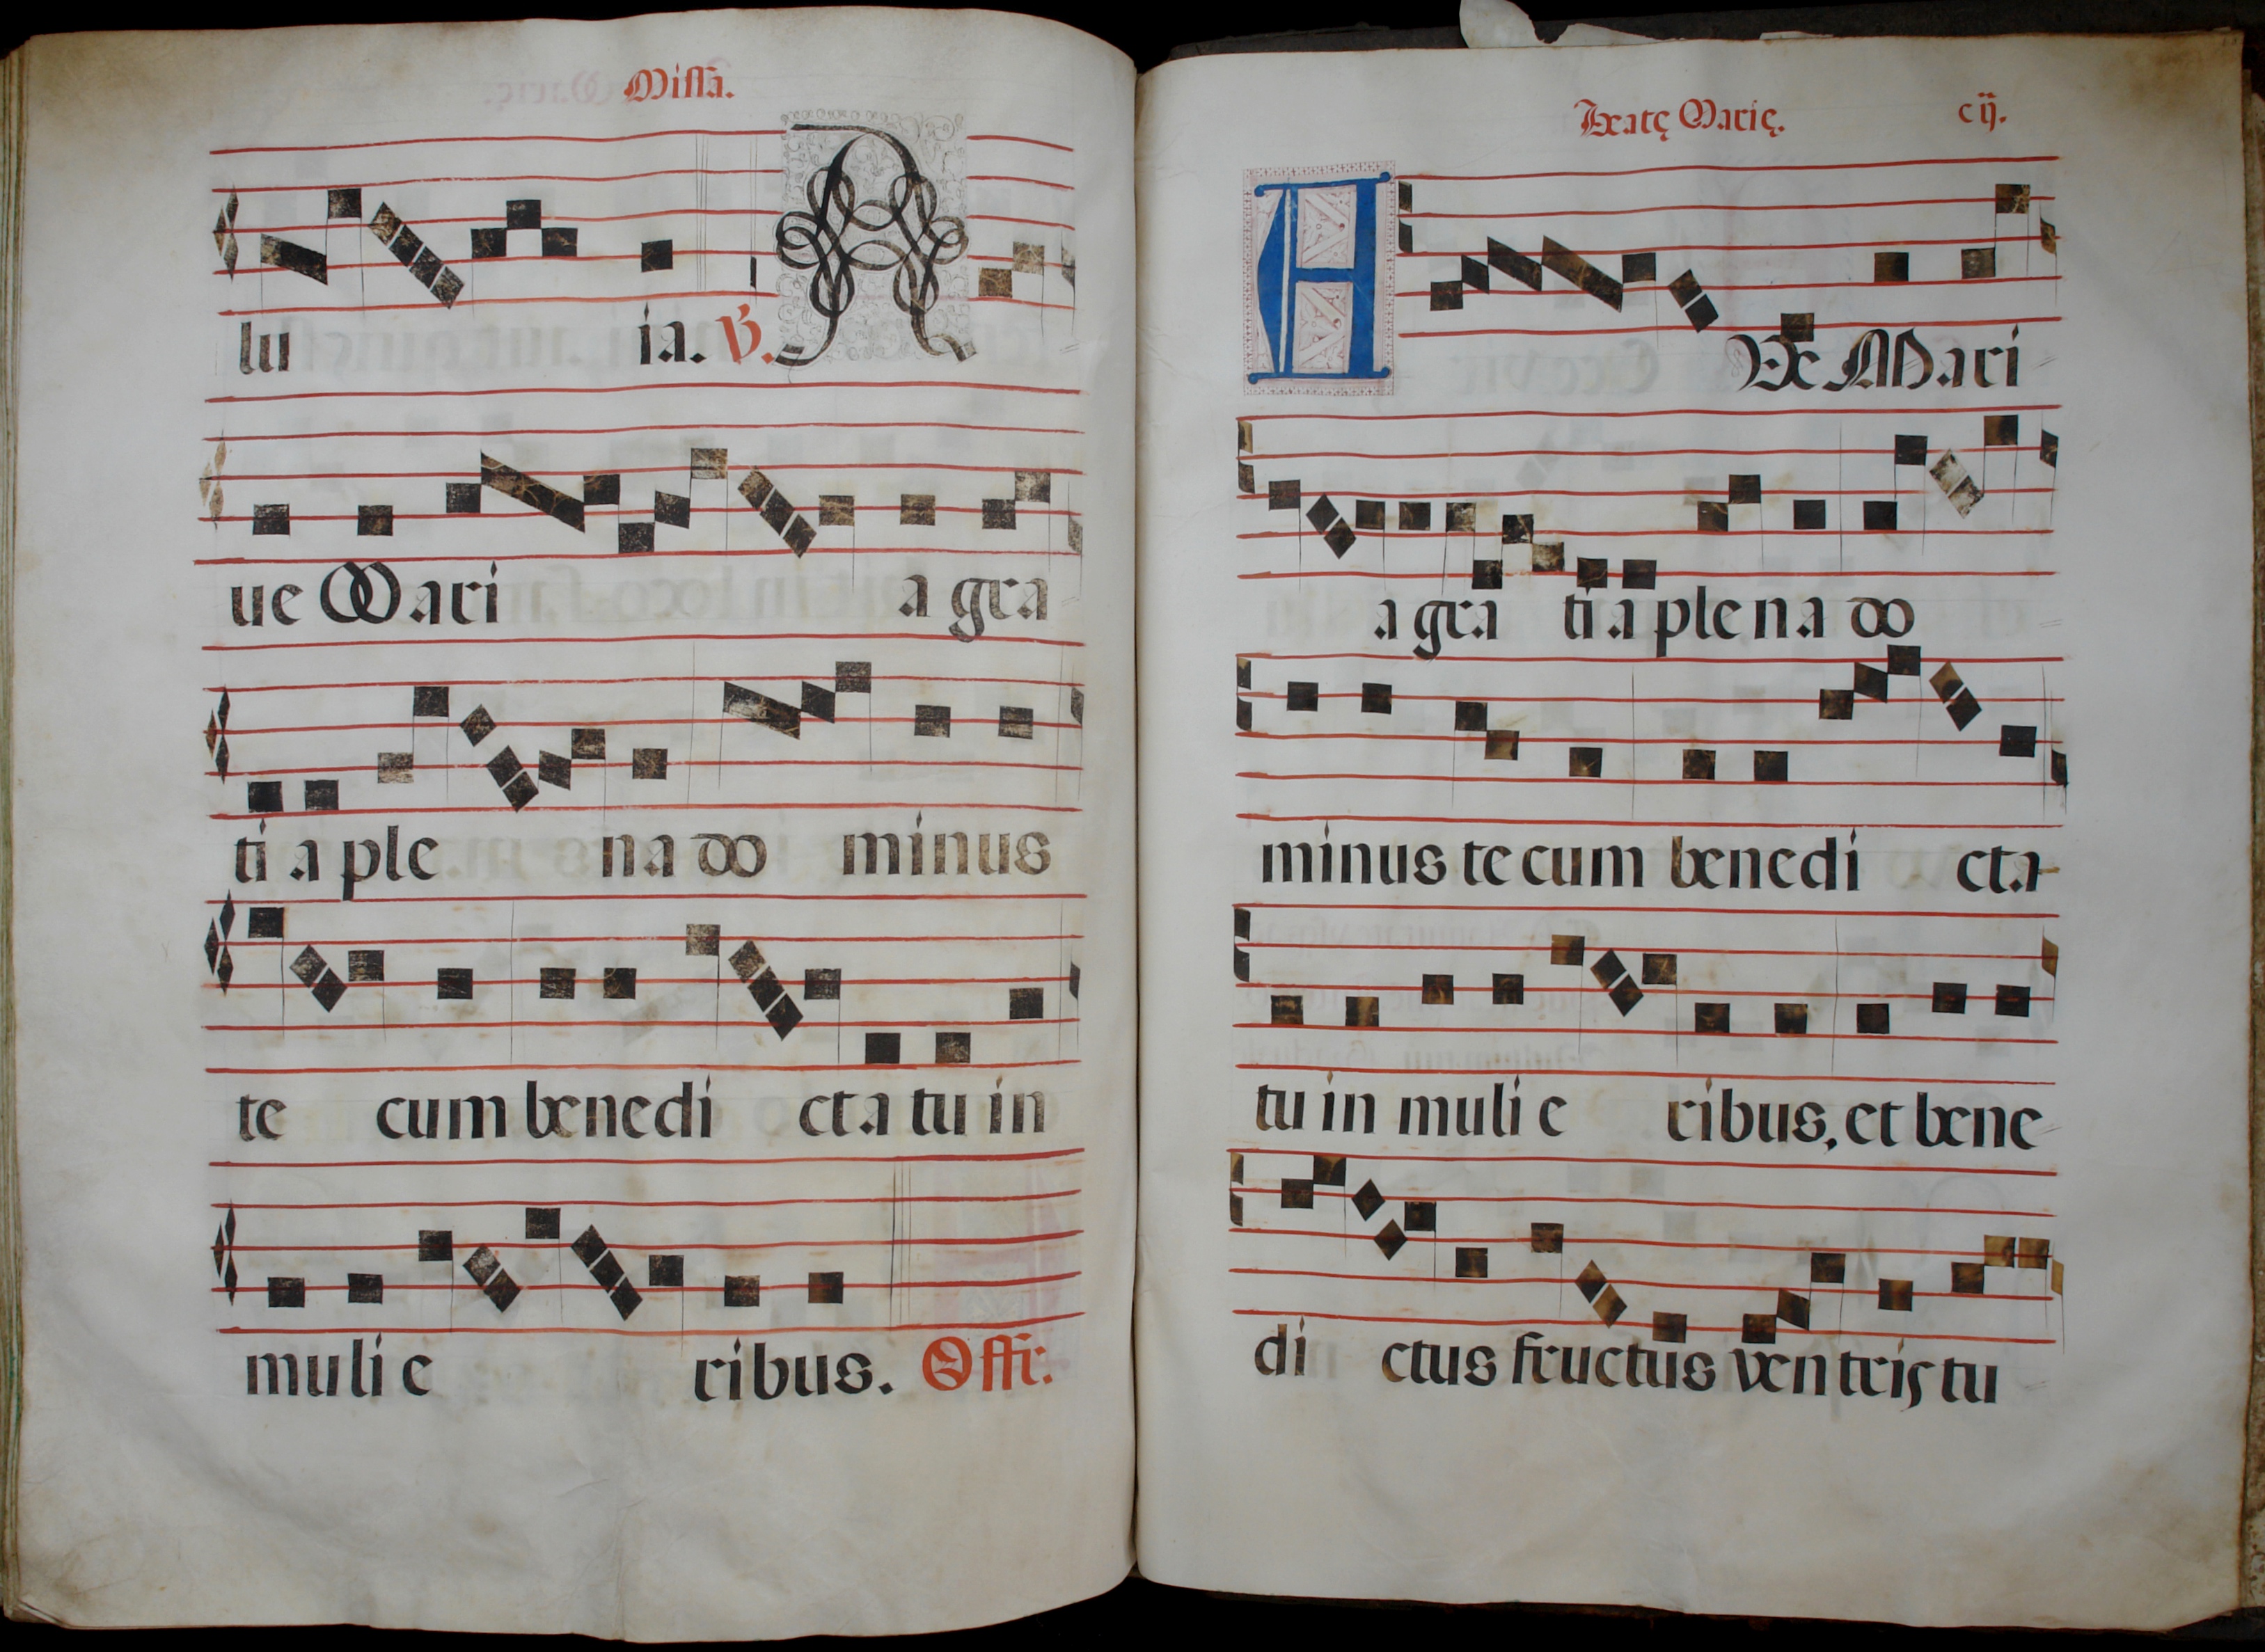 Missa.
lu ia. V. A
ue Mari a gra
ti a ple na do minus
te cum benedi cta tu in
muli e ribus. Offr.
Beatę Marię. cij.
A VE Mari
a gra ti a ple na do
minus te cum benedi cta
tu in muli e ribus, et bene
di ctus fructus ven tris tu